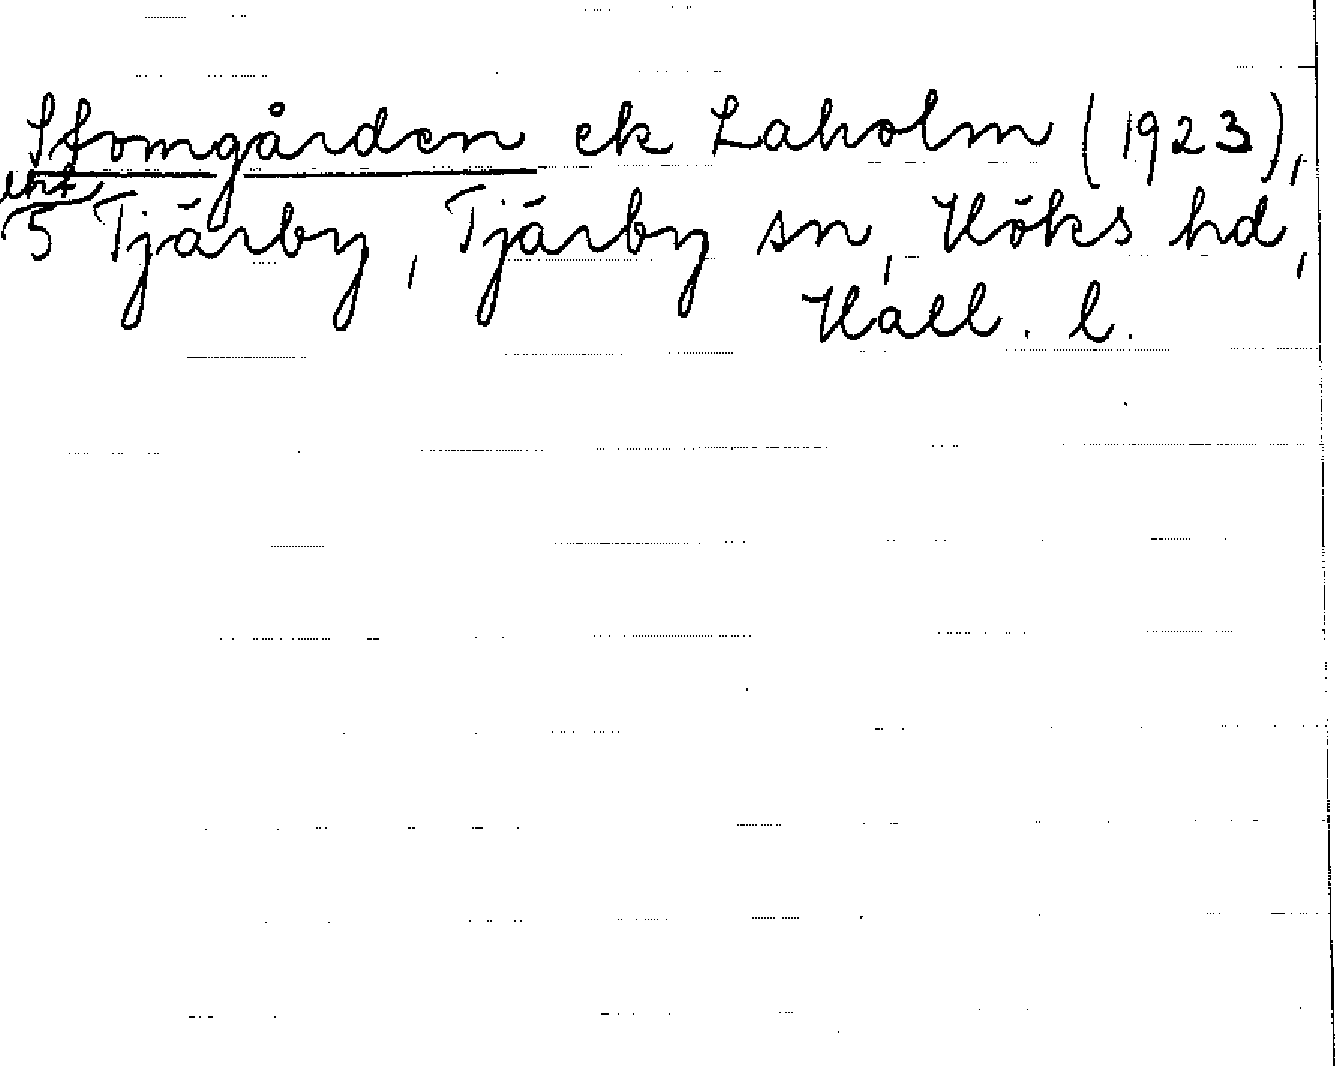 Stomgården ek Laholm (1923),
5 Tjärby, Tjärby sn, Höks hd,
Hall. l.